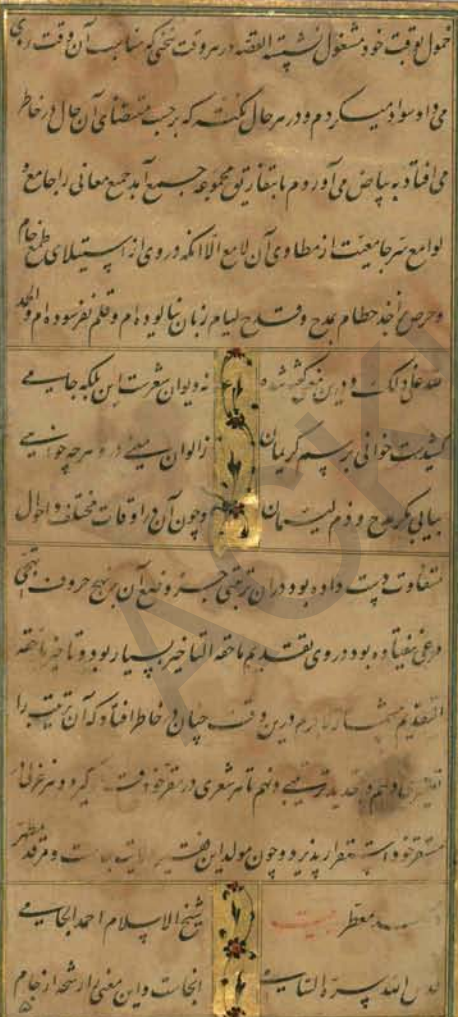 خمول بوقت خود مشغول نشسته القصه در هر وقت سخنی که مناسب آن وقت روی
می داد سواد میکردم و در هر حال نکته که بر حسب مقتضای آن حال در خاطر
می افتاد به بیاض می آوردم تا بتفاریق مجموعه جمع آمد جمع معانی را جامع و
لوامع سر جامعیت از مطاوی آن لامع الا انکه در وی از استیلای طمع خام
و حرص اخذ حطام بمدح و قدح لیام زبان نیالوده ام و قلم نفرسوده ام والحمد
لله علی ذلک و درین معنی گفته شده نه دیوان شعرست این بلکه جامی
کشیدست خوانی برسم کریمان ز الوان معنی درو هرچه خواهی
بیابی مگر مدح و ذم لئیمان و چون آن در اوقات مختلف و احوال
متفاوت دست داده بود در آن ترتیبی جز وضع آن بر نهج حروف تهجی
مرعی نیفتاده بود در وی تقدیم ماحقه التاخیر بسیار بود و تاخیر ماحقه
التقدیم بیشمار لاجرم درین وقت چنان در خاطر افتاد که آن ترتیب را
تغییری دهم و تجدید ترتیبی دهم تا هر شعری در مقر خود وقت گیرد و هر غزلی در
مستقر خود استقرار پذیرد و چون مولد این فقیر ولایت جامست و مرقد مطهر
معطر شیخ الاسلام احمد الجامی
قدس الله سره السامی انجاست و این معنی را رشحه از جام